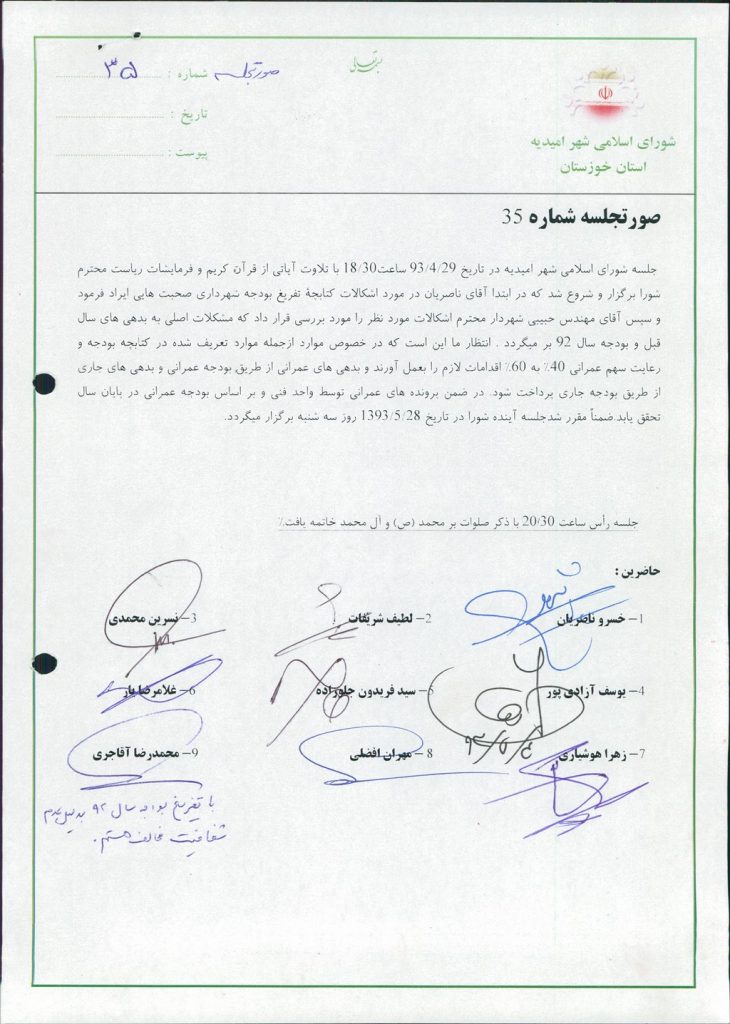 بسمه تعالی
شماره : صورتجلسه ۳۵
تاریخ :
پیوست :
شورای اسلامی شهر امیدیه
استان خوزستان
صورتجلسه شماره 35
جلسه شورای اسلامی شهر امیدیه در تاریخ 93/4/29 ساعت18/30 با تلاوت آیاتی از قرآن کریم و فرمایشات ریاست محترم
شورا برگزار و شروع شد که در ابتدا آقای ناصریان در مورد اشکالات کتابچۀ تفریغ بودجه شهرداری صحبت هایی ایراد فرمود
و سپس آقای مهندس حبیبی شهردار محترم اشکالات مورد نظر را مورد بررسی قرار داد که مشکلات اصلی به بدهی های سال
قبل و بودجه سال 92 بر میگردد . انتظار ما این است که در خصوص موارد ازجمله موارد تعریف شده در کتابچه بودجه و
رعایت سهم عمرانی 40٪ به 60٪ اقدامات لازم را بعمل آورند و بدهی های عمرانی از طریق بودجه عمرانی و بدهی های جاری
از طریق بودجه جاری پرداخت شود. در ضمن برونده های عمرانی توسط واحد فنی و بر اساس بودجه عمرانی در پایان سال
تحقق یابد.ضمناً مقرر شدجلسه آینده شورا در تاریخ 1393/5/28 روز سه شنبه برگزار میگردد.
جلسه رأس ساعت 20/30 با ذکر صلوات بر محمد (ص) و آل محمد خاتمه یافت.٪
حاضرین :
1– خسرو ناصریان 2– لطیف شریفات 3– نسرین محمدی
4– یوسف آزادی پور 5– سید فریدون جلوزاده 6– غلامرضا یار
7– زهرا هوشیاری 8– مهران افضلی 9– محمدرضا آقاجری
با تفریغ بودجه سال ۹۲ بدلیل عدم
شفافیت مخالف هستم.